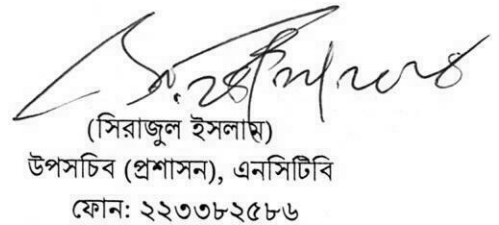 (সিরাজুল ইসলাম)
উপসচিব (প্রশাসন), এনসিটিবি
ফোন: ২২৩৩৮২৫৮৬